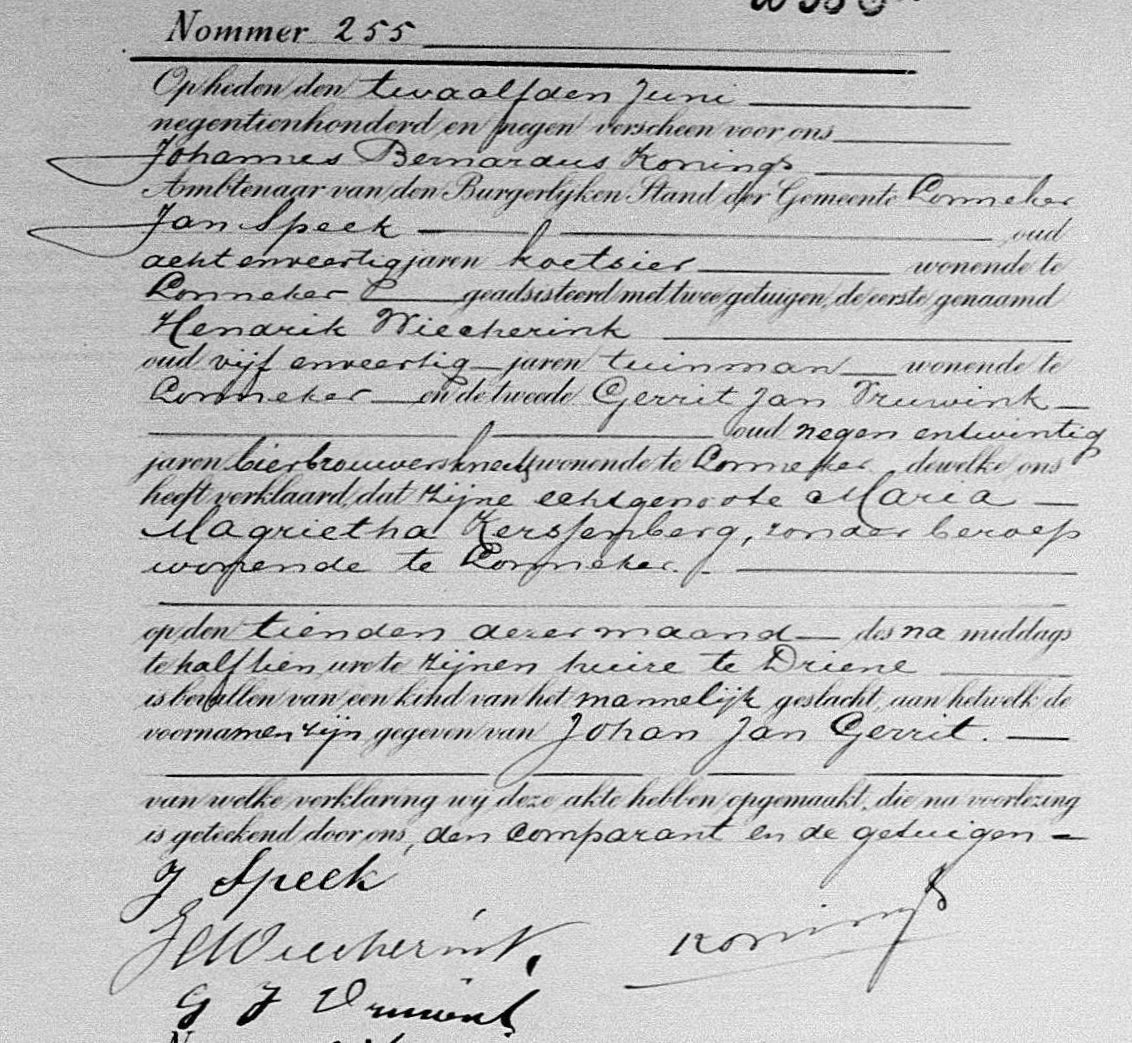 Nommer 255
Op heden den twaalfden Juni
negentienhonderd en negen verscheen voor ons
Johannes Bernardus Konings
Ambtenaar van den Burgerlyken Stand der Gemeente Lonneker
Jan Speek oud
acht en veertig jaren koetsier wonende te
Lonneker geadsisteerd met twee getuigen, de eerste genaamd
Hendrik Wiecherink
oud vijf en veertig jaren tuinman wonende te
Lonneker en de tweede Gerrit Jan Vruwink
oud negen en twintig
jaren bierbrouwersknecht wonende te Lonneker, dewelke ons
heeft verklaard, dat zijne echtgenoote Maria
Magrietha Kerssenberg, zonder beroep
wonende te Lonneker.
op den tienden dezer maand des na middags
te half tien ure te zijnen huize te Driene
is bevallen van een kind van het mannelijk geslacht, aan hetwelk de
voornamen zijn gegeven van Johan Jan Gerrit.
van welke verklaring wy deze akte hebben opgemaakt, die na voorlezing
is geteekend door ons, den comparant en de getuigen
J Speek
H Wiecherink. Konings
G J Vruwink